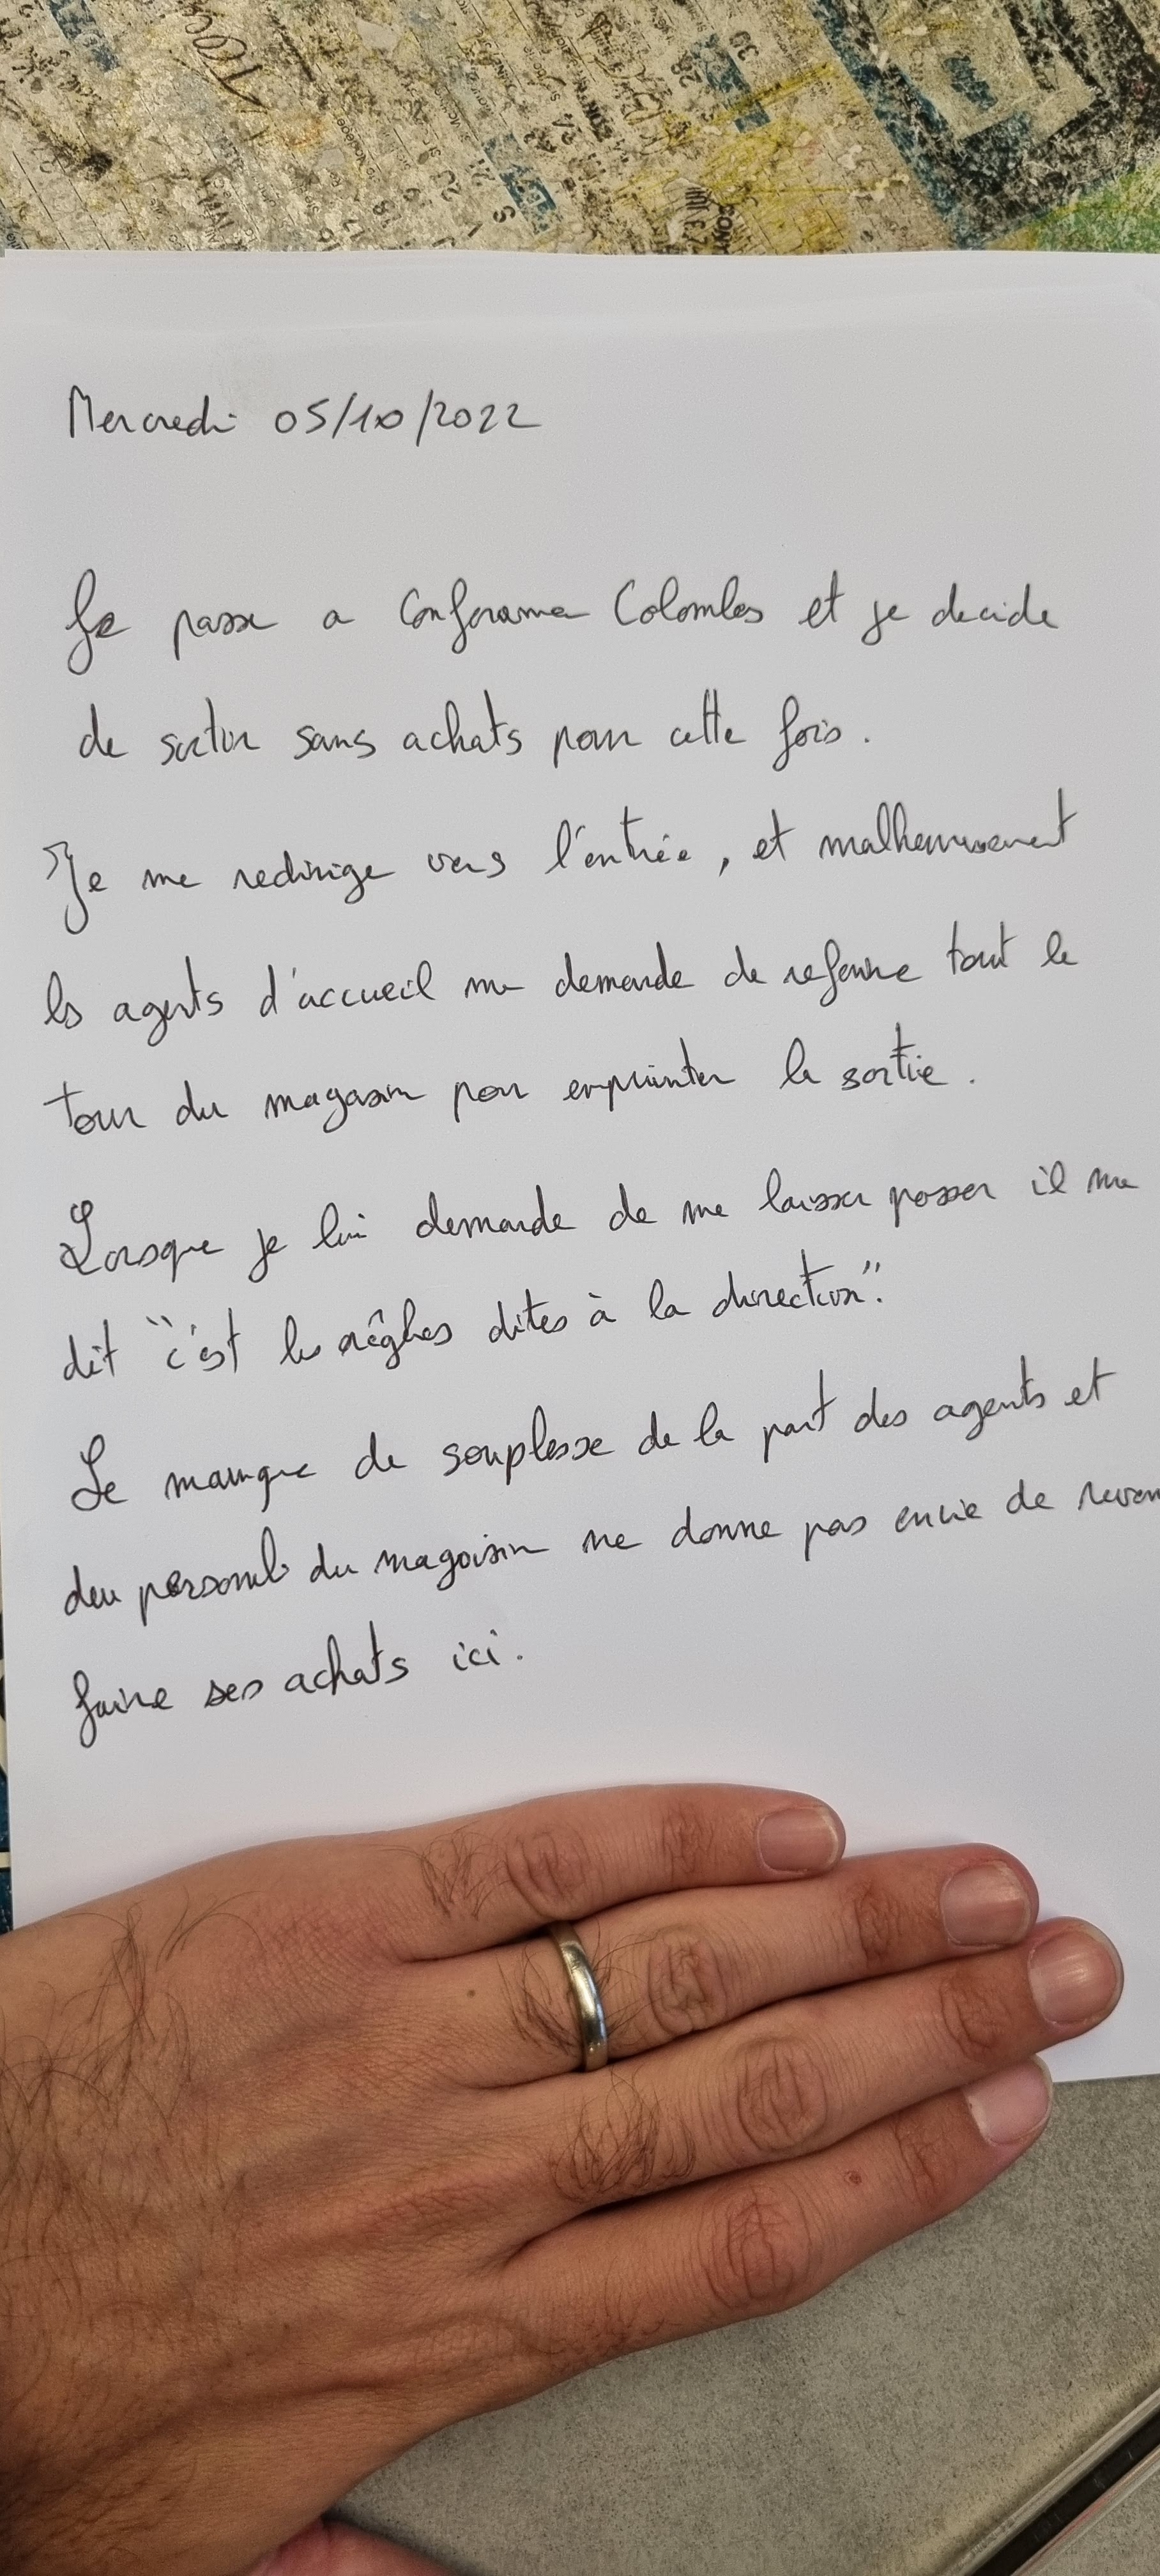 Mercredi 05/10/2022
Je passe a Conforama Colombes et je decide
de sortir sans achats pour cette fois.
Je me redirige vers l'entrée, et malheureusement
les agents d'accueil me demande de refaire tout le
tour du magasin pour emprunter la sortie.
Lorsque je lui demande de me laisser passer il me
dit "c'est les règles dites à la direction".
Le manque de souplesse de la part des agents et
du personnel du magasin ne donne pas envie de
faire ses achats ici.